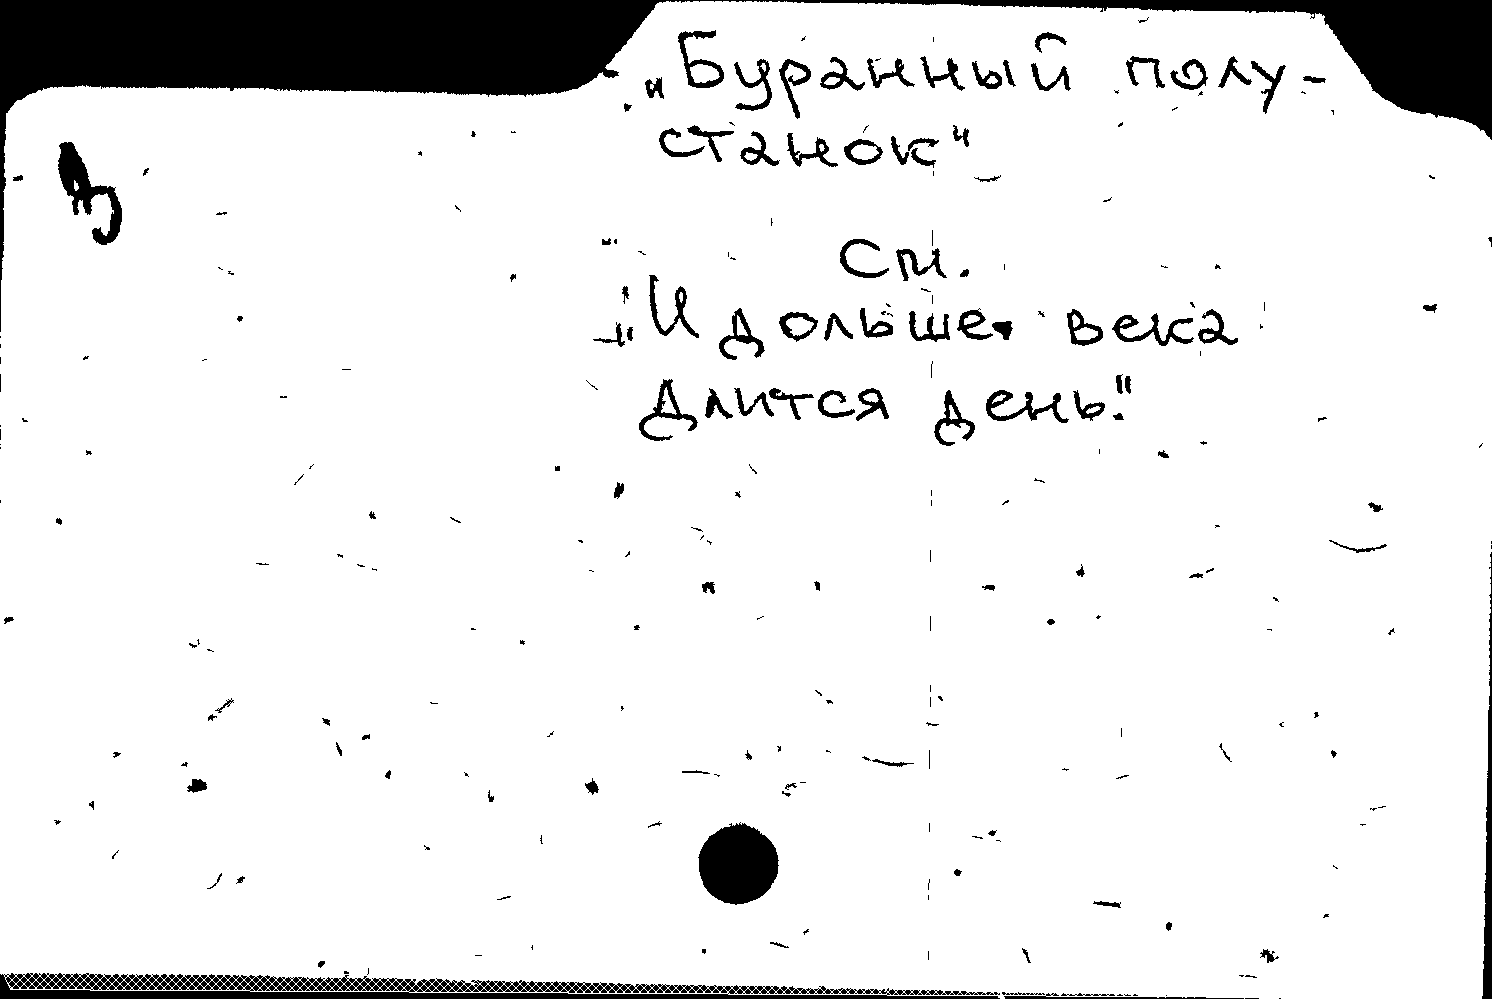 „Буранный полу-
станок"
См.
„И дольше века
длится день."